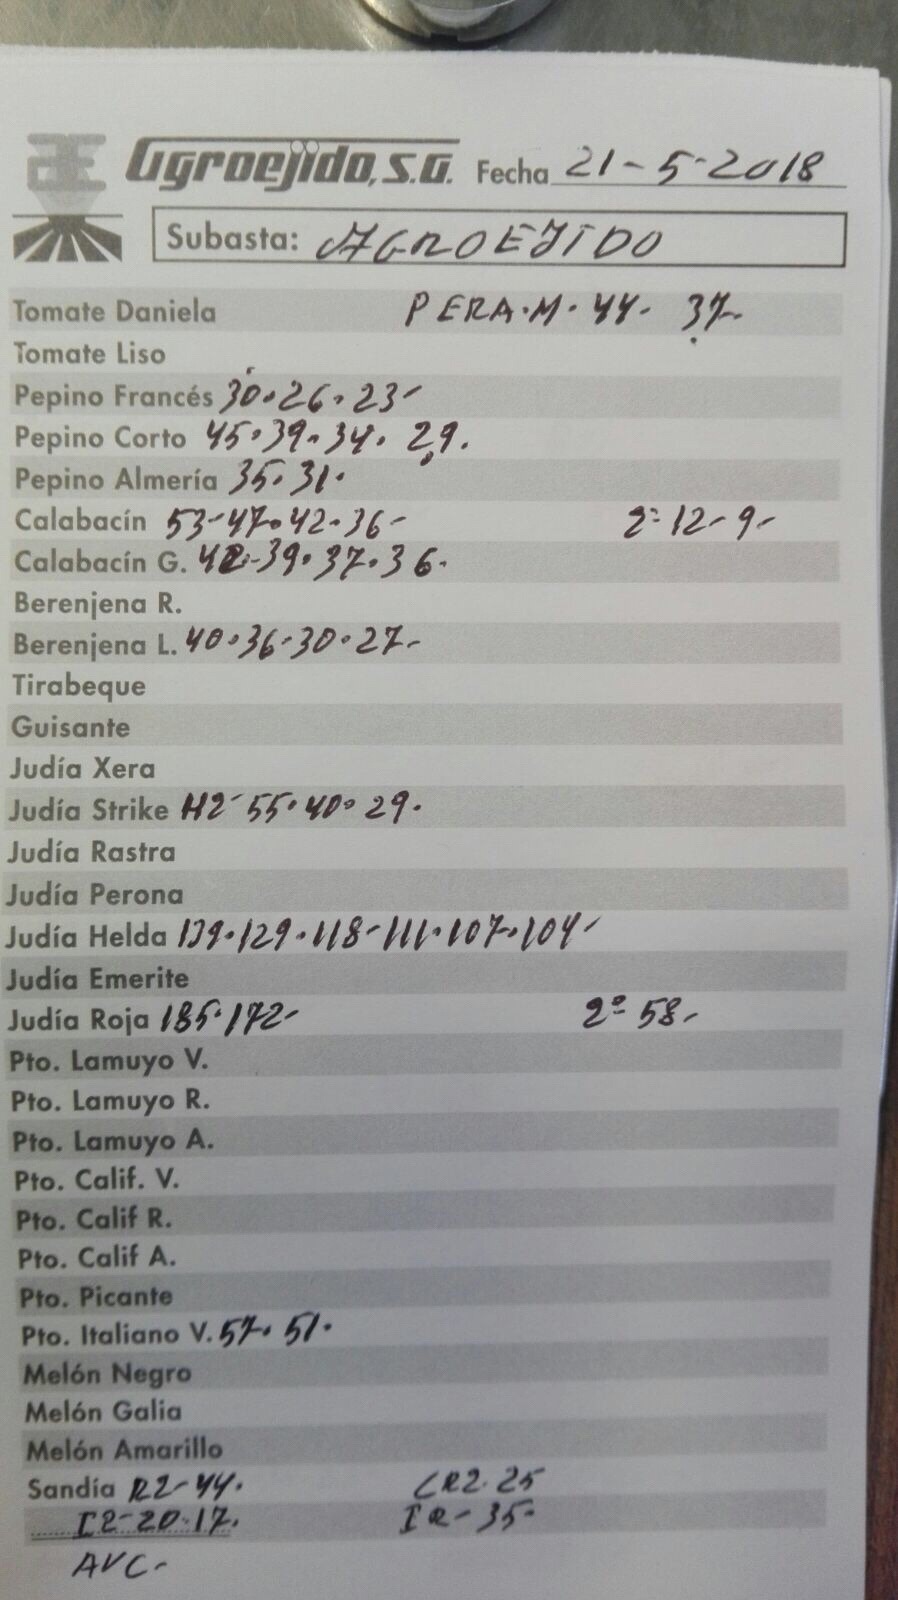 Agroejido, S.A. Fecha 21-5-2018
Subasta: AGROEJIDO
Tomate Daniela PERA.M. 44- 37-
Tomate Liso
Pepino Francés 30.26.23-
Pepino Corto 45.39.34. 29.
Pepino Almería 35.31.
Calabacín 53-47.42.36- 2ª 12-9-
Calabacín G. 42-39.37.36.
Berenjena R.
Berenjena L. 40.36-30.27-
Tirabeque
Guisante
Judía Xera
Judía Strike H2- 55.40.29.
Judía Rastra
Judía Perona
Judía Helda 139.129.118-111.107.104-
Judía Emerite
Judía Roja 185.172- 2ª 58-
Pto. Lamuyo V.
Pto. Lamuyo R.
Pto. Lamuyo A.
Pto. Calif. V.
Pto. Calif R.
Pto. Calif A.
Pto. Picante
Pto. Italiano V. 57. 51.
Melón Negro
Melón Galia
Melón Amarillo
Sandía R2-44. CR2.25
I2-20-17. IR-35-
AVC-